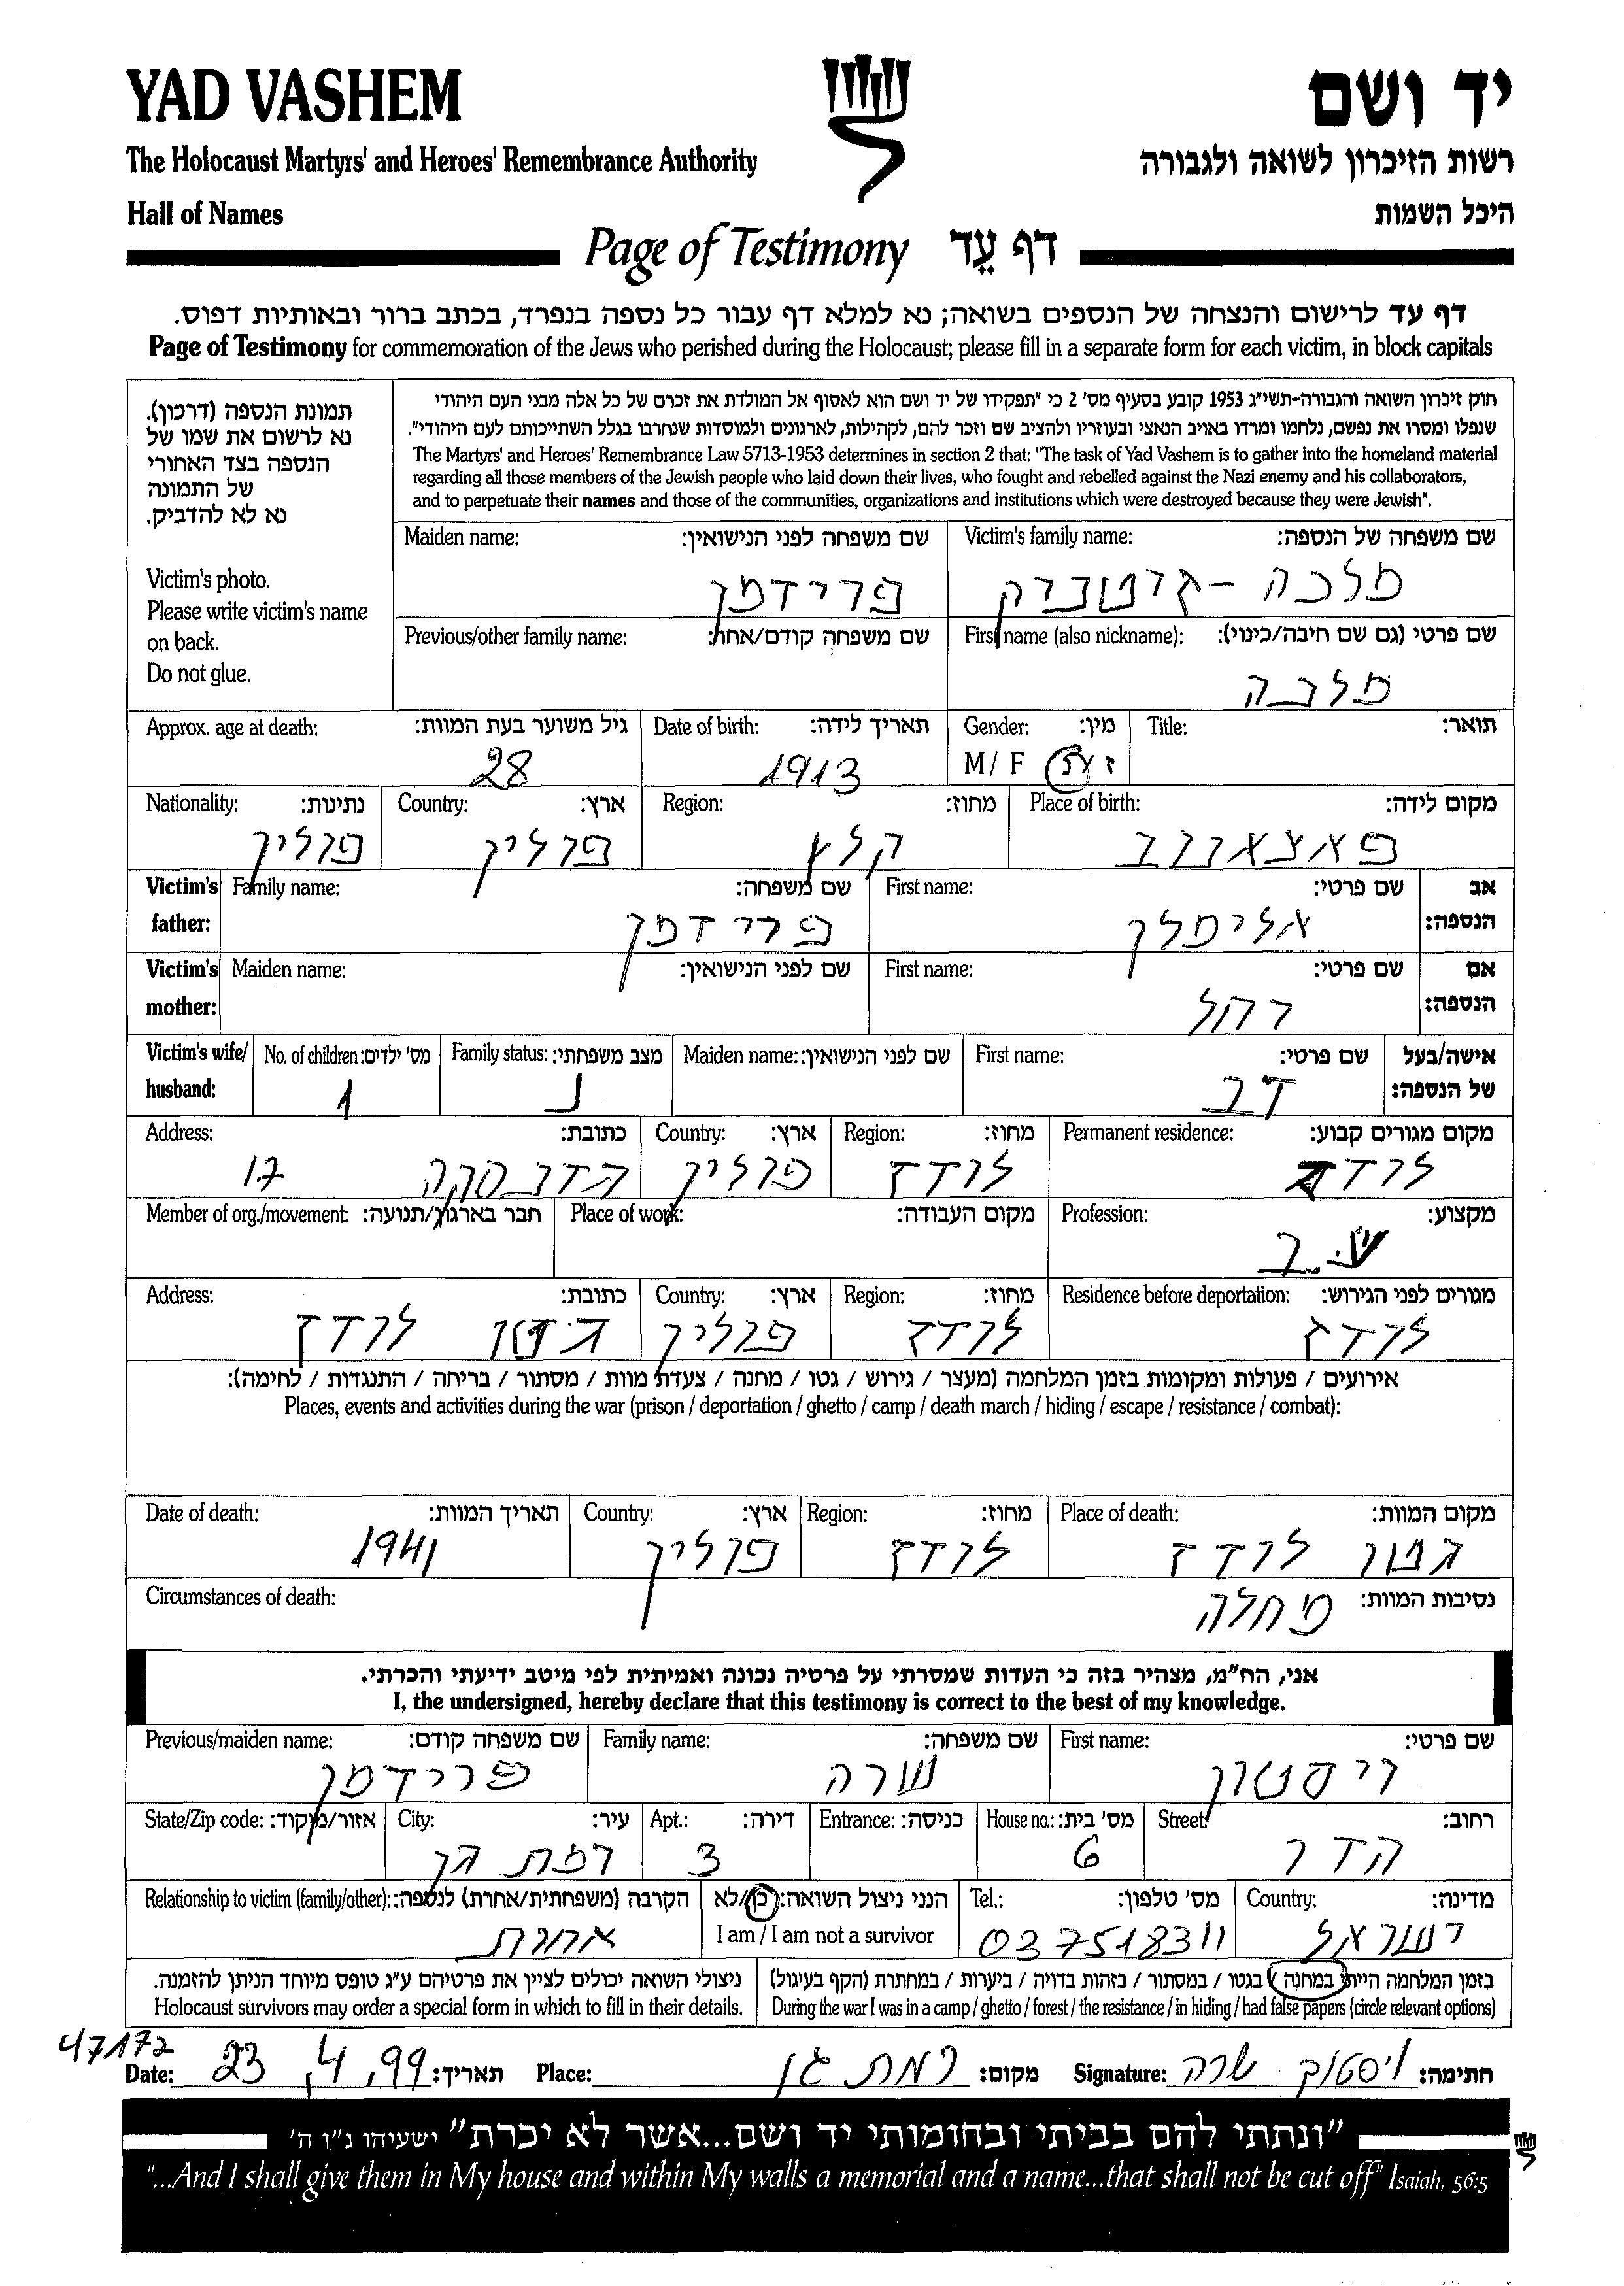 YAD VASHEM
יד ושם
The Holocaust Martyrs' and Heroes' Remembrance Authority
רשות הזיכרון לשואה ולגבורה
Hall of Names
היכל השמות
Page of Testimony דף עֵד
דף עד לרישום והנצחה של הנספים בשואה; נא למלא דף עבור כל נספה בנפרד, בכתב ברור ובאותיות דפוס.
Page of Testimony for commemoration of the Jews who perished during the Holocaust; please fill in a separate form for each victim, in block capitals
תמונת הנספה (דרכון).
נא לרשום את שמו של
הנספה בצד האחורי
של התמונה
נא לא להדביק.
Victim's photo.
Please write victim's name
on back.
Do not glue.
חוק זיכרון השואה והגבורה-תשי"ג 1953 קובע בסעיף מס' 2 כי "תפקידו של יד ושם הוא לאסוף אל המולדת את זכרם של כל אלה מבני העם היהודי
שנפלו ומסרו את נפשם, נלחמו ומרדו באויב הנאצי ובעוזריו ולהציב שם וזכר להם, לקהילות, לארגונים ולמוסדות שנחרבו בגלל השתייכותם לעם היהודי".
The Martyrs' and Heroes' Remembrance Law 5713-1953 determines in section 2 that: "The task of Yad Vashem is to gather into the homeland material
regarding all those members of the Jewish people who laid down their lives, who fought and rebelled against the Nazi enemy and his collaborators,
and to perpetuate their names and those of the communities, organizations and institutions which were destroyed because they were Jewish".
Victim's family name: שם משפחה של הנספה:
מלכה
Maiden name: שם משפחה לפני הנישואין:
פרידמן
First name (also nickname): שם פרטי (גם שם חיבה/כינוי):
מלכה
Previous/other family name: שם משפחה קודם/אחר:
Title: תואר:
Gender: מין:
M / F ז / נ
Date of birth: תאריך לידה:
1913
Approx. age at death: גיל משוער בעת המוות:
28
Place of birth: מקום לידה:
פאצאנוב
Region: מחוז:
קלץ
Country: ארץ:
פולין
Nationality: נתינות:
פולין
Victim's father: אב הנספה:
First name: שם פרטי:
אלימלך
Family name: שם משפחה:
פרידמן
Victim's mother: אם הנספה:
First name: שם פרטי:
רחל
Maiden name: שם לפני הנישואין:
Victim's wife/husband: אישה/בעל של הנספה:
First name: שם פרטי:
דב
Maiden name: שם לפני הנישואין:
Family status: מצב משפחתי:
נ
No. of children: מס' ילדים:
1
Permanent residence: מקום מגורים קבוע:
לודז
Region: מחוז:
לודז
Country: ארץ:
פולין
Address: כתובת:
17
Profession: מקצוע:
ע.ב
Place of work: מקום העבודה:
Member of org./movement: חבר בארגון/תנועה:
Residence before deportation: מגורים לפני הגירוש:
לודז
Region: מחוז:
לודז
Country: ארץ:
פולין
Address: כתובת:
גיטו לודז
אירועים / פעולות ומקומות בזמן המלחמה (מעצר / גירוש / גטו / מחנה / צעדת מוות / מסתור / בריחה / התנגדות / לחימה):
Places, events and activities during the war (prison / deportation / ghetto / camp / death march / hiding / escape / resistance / combat):
Place of death: מקום המוות:
גטו לודז
Region: מחוז:
לודז
Country: ארץ:
פולין
Date of death: תאריך המוות:
1941
Circumstances of death: נסיבות המוות:
מחלה
אני, הח"מ, מצהיר בזה כי העדות שמסרתי על פרטיה נכונה ואמיתית לפי מיטב ידיעתי והכרתי.
I, the undersigned, hereby declare that this testimony is correct to the best of my knowledge.
First name: שם פרטי:
ויסטון
Family name: שם משפחה:
שרה
Previous/maiden name: שם משפחה קודם:
פרידמן
Street: רחוב:
הדר
House no.: מס' בית:
6
Entrance: כניסה:
Apt.: דירה:
3
City: עיר:
רמת גן
State/Zip code: אזור/מיקוד:
Country: מדינה:
ישראל
Tel.: מס' טלפון:
037518311
הנני ניצול השואה: כן/לא
I am / I am not a survivor
Relationship to victim (family/other): הקרבה (משפחתית/אחרת) לנספה:
אחות
בזמן המלחמה הייתי במחנה / בגטו / במסתור / בזהות בדויה / ביערות / במחתרת (הקף בעיגול)
During the war I was in a camp / ghetto / forest / the resistance / in hiding / had false papers (circle relevant options)
ניצולי השואה יכולים לציין את פרטיהם ע"ג טופס מיוחד הניתן להזמנה.
Holocaust survivors may order a special form in which to fill in their details.
47172
Date: 23.4.99 תאריך: Place: רמת גן מקום: Signature: ויסטון שרה חתימה:
"ונתתי להם בביתי ובחומותי יד ושם...אשר לא יכרת" ישעיהו נ"ו ה'
"...And I shall give them in My house and within My walls a memorial and a name...that shall not be cut off" Isaiah, 56:5